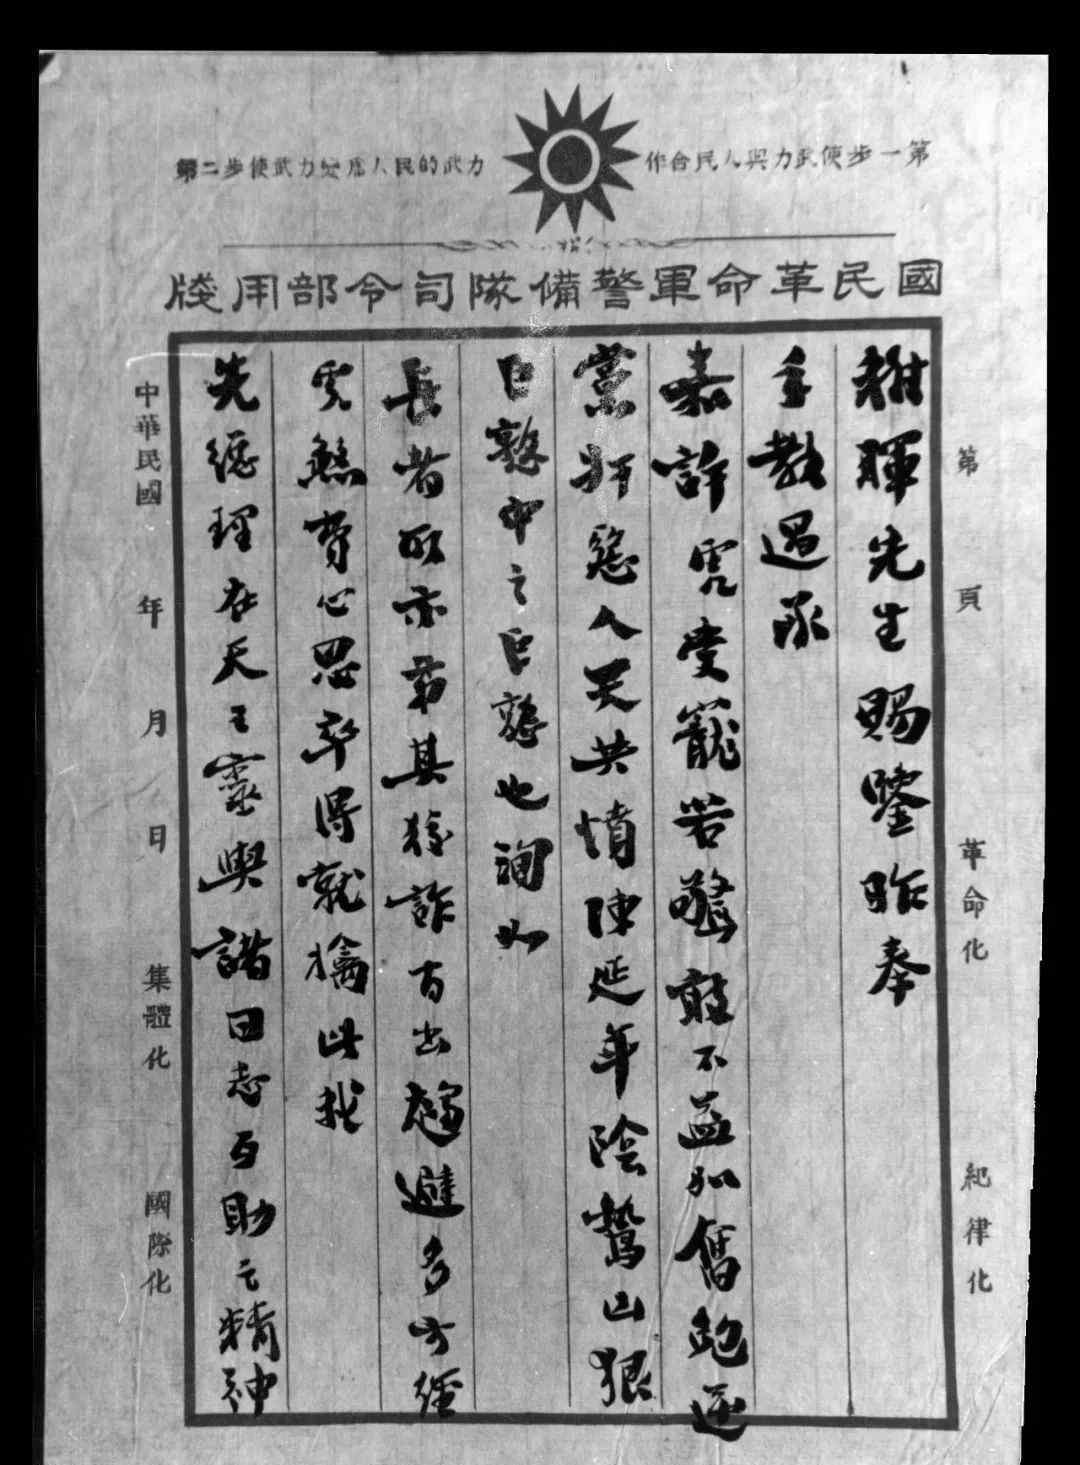 第一步使武力與人民合作
第二步使武力變爲人民的武力
國民革命軍警備隊司令部用牋
第 頁
革命化 紀律化
稚暉先生賜鑒昨奉
手教過承
嘉許虎受寵若驚敢不益加奮勉逆
黨奸惡人天共憤陳延年陰鷙凶狠
巨憝中之巨憝也詢如
長者所示第其狡詐百出趨避多方經
虎煞費心思卒得就擒此我
先總理在天之靈與諸同志互助之精神
中華民國 年 月 日
集體化 國際化